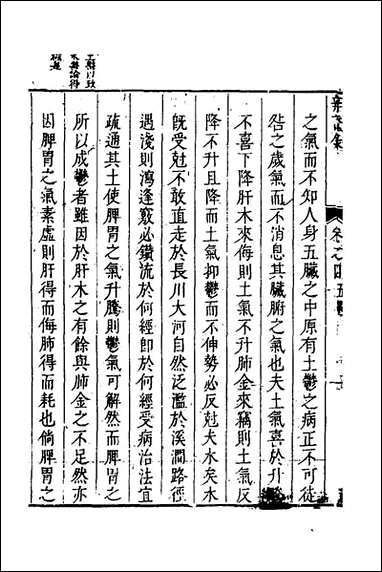 辨證錄 卷之四五鬱
之氣而不知人身五臟之中原有土鬱之病正不可徒
咎之歲氣而不消息其臟腑之氣也夫土氣喜於升騰
不喜下降肝木來侮則土氣不升肺金來竊則土氣反
降不升且降而土氣抑鬱而不伸勢必反尅夫水矣水
既受尅不敢直走於長川大河自然泛濫於溪澗路徑
遇淺則瀉逢竅必鑽流於何經即於何經受病治法宜
疏通其土使脾胃之氣升騰則鬱氣可解然而脾胃之
所以成鬱者雖因於肝木之有餘與肺金之不足然亦
因脾胃之氣素虛則肝得而侮肺得而耗也倘脾胃之